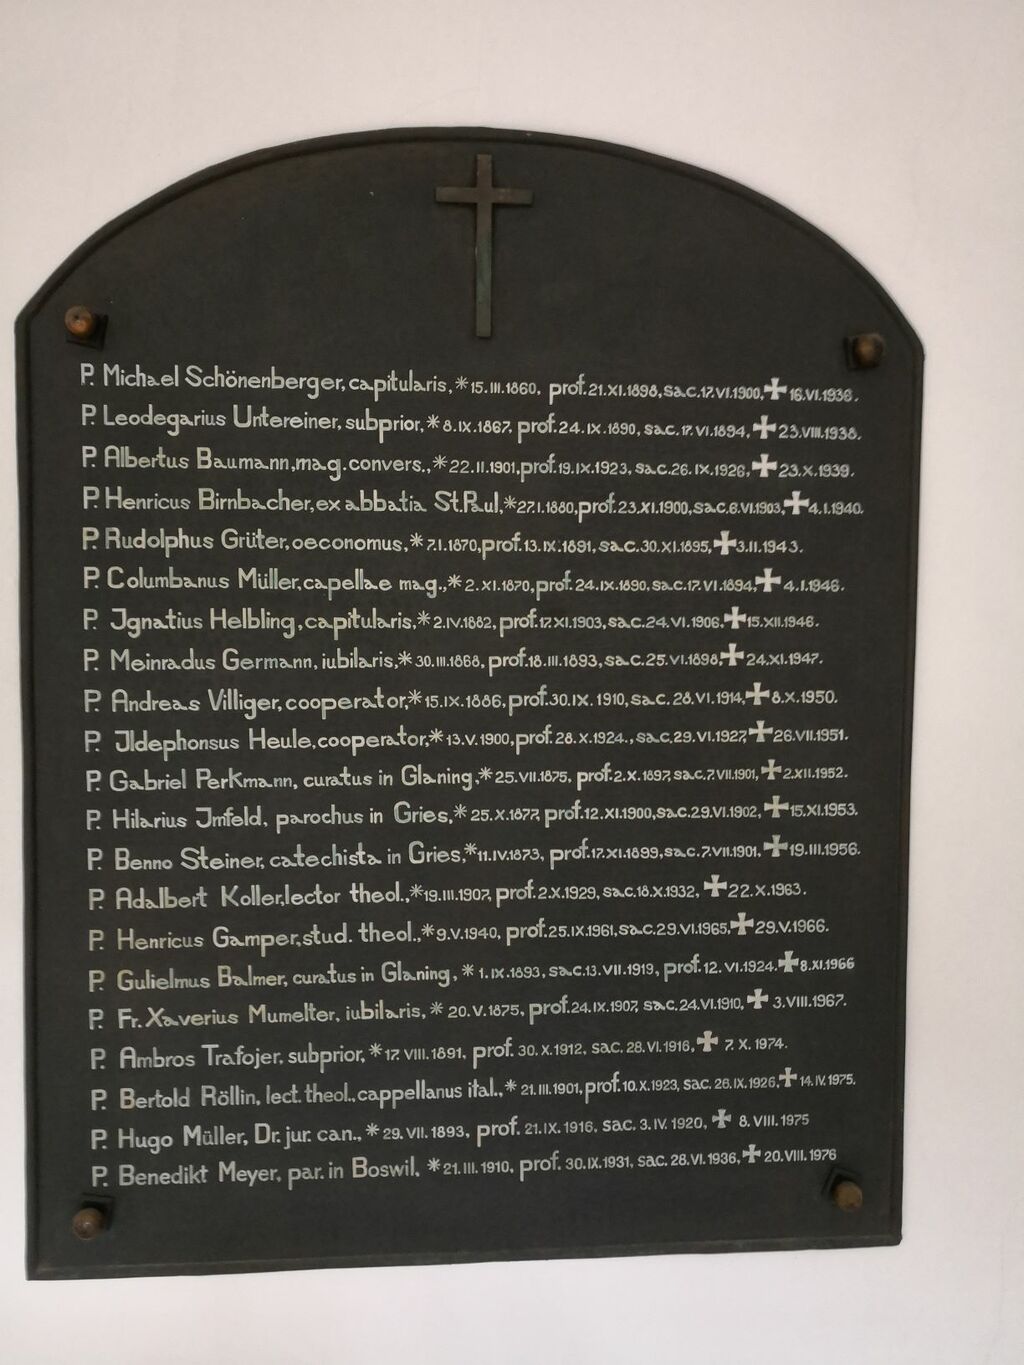 P. Michael Schönenberger, capitularis, *15.III.1860, prof.21.XI.1898, sac.17.VI.1900, ✠ 16.VI.1938.
P. Leodegarius Untereiner, subprior, * 8.IX.1867, prof.24.IX.1890, sac.17.VI.1894, ✠ 23.VIII.1938.
P. Albertus Baumann, mag.convers., * 22.II.1901, prof.19.IX.1923, sac.26.IX.1926, ✠ 23.X.1939.
P. Henricus Birnbacher, ex abbatia St.Paul, *27.I.1880, prof.23.XI.1900, sac.6.VI.1903, ✠ 4.I.1940.
P. Rudolphus Grüter, oeconomus, *7.I.1870, prof.13.IX.1891, sac.30.XI.1895, ✠ 3.II.1943.
P. Columbanus Müller, capellae mag., * 2.XI.1870, prof.24.IX.1890, sac.17.VI.1894, ✠ 4.I.1946.
P. Jgnatius Helbling, capitularis, * 2.IV.1882, prof.17.XI.1903, sac.24.VI.1906, ✠ 15.XII.1946.
P. Meinradus Germann, iubilaris, * 30.III.1868, prof.18.III.1893, sac.25.VI.1898, ✠ 24.XI.1947.
P. Andreas Villiger, cooperator, * 15.IX.1886, prof.30.IX.1910, sac.28.VI.1914, ✠ 8.X.1950.
P. Jldephonsus Heule, cooperator, * 13.V.1900, prof.28.X.1924., sac.29.VI.1927, ✠ 26.VII.1951.
P. Gabriel Perkmann, curatus in Glaning, * 25.VII.1875, prof.2.X.1897, sac.7.VII.1901, ✠ 2.XII.1952.
P. Hilarius Jmfeld, parochus in Gries, * 25.X.1877, prof.12.XI.1900, sac.29.VI.1902, ✠ 15.XI.1953.
P. Benno Steiner, catechista in Gries, * 11.IV.1873, prof.17.XI.1899, sac.7.VII.1901, ✠ 19.III.1956.
P. Adalbert Koller, lector theol., * 19.III.1907, prof.2.X.1929, sac.18.X.1932, ✠ 22.X.1963.
P. Henricus Gamper, stud. theol., * 9.V.1940, prof.25.IX.1961, sac.29.VI.1965, ✠ 29.V.1966.
P. Gulielmus Balmer, curatus in Glaning, * 1.IX.1893, sac.13.VII.1919, prof.12.VI.1924. ✠ 8.XI.1966
P. Fr.Xaverius Mumelter, iubilaris, * 20.V.1875, prof.24.IX.1907, sac.24.VI.1910, ✠ 3.VIII.1967.
P. Ambros Trafojer, subprior, * 17.VIII.1891, prof. 30.X.1912, sac. 28.VI.1916, ✠ 7.X.1974.
P. Bertold Röllin, lect.theol., cappellanus ital., * 21.III.1901, prof.10.X.1923, sac. 26.IX.1926, ✠ 14.IV.1975.
P. Hugo Müller, Dr. jur. can., * 29.VII.1893, prof. 21.IX.1916, sac. 3.IV.1920, ✠ 8.VIII.1975
P. Benedikt Meyer, par. in Boswil, * 21.III.1910, prof. 30.IX.1931, sac. 28.VI.1936, ✠ 20.VIII.1976